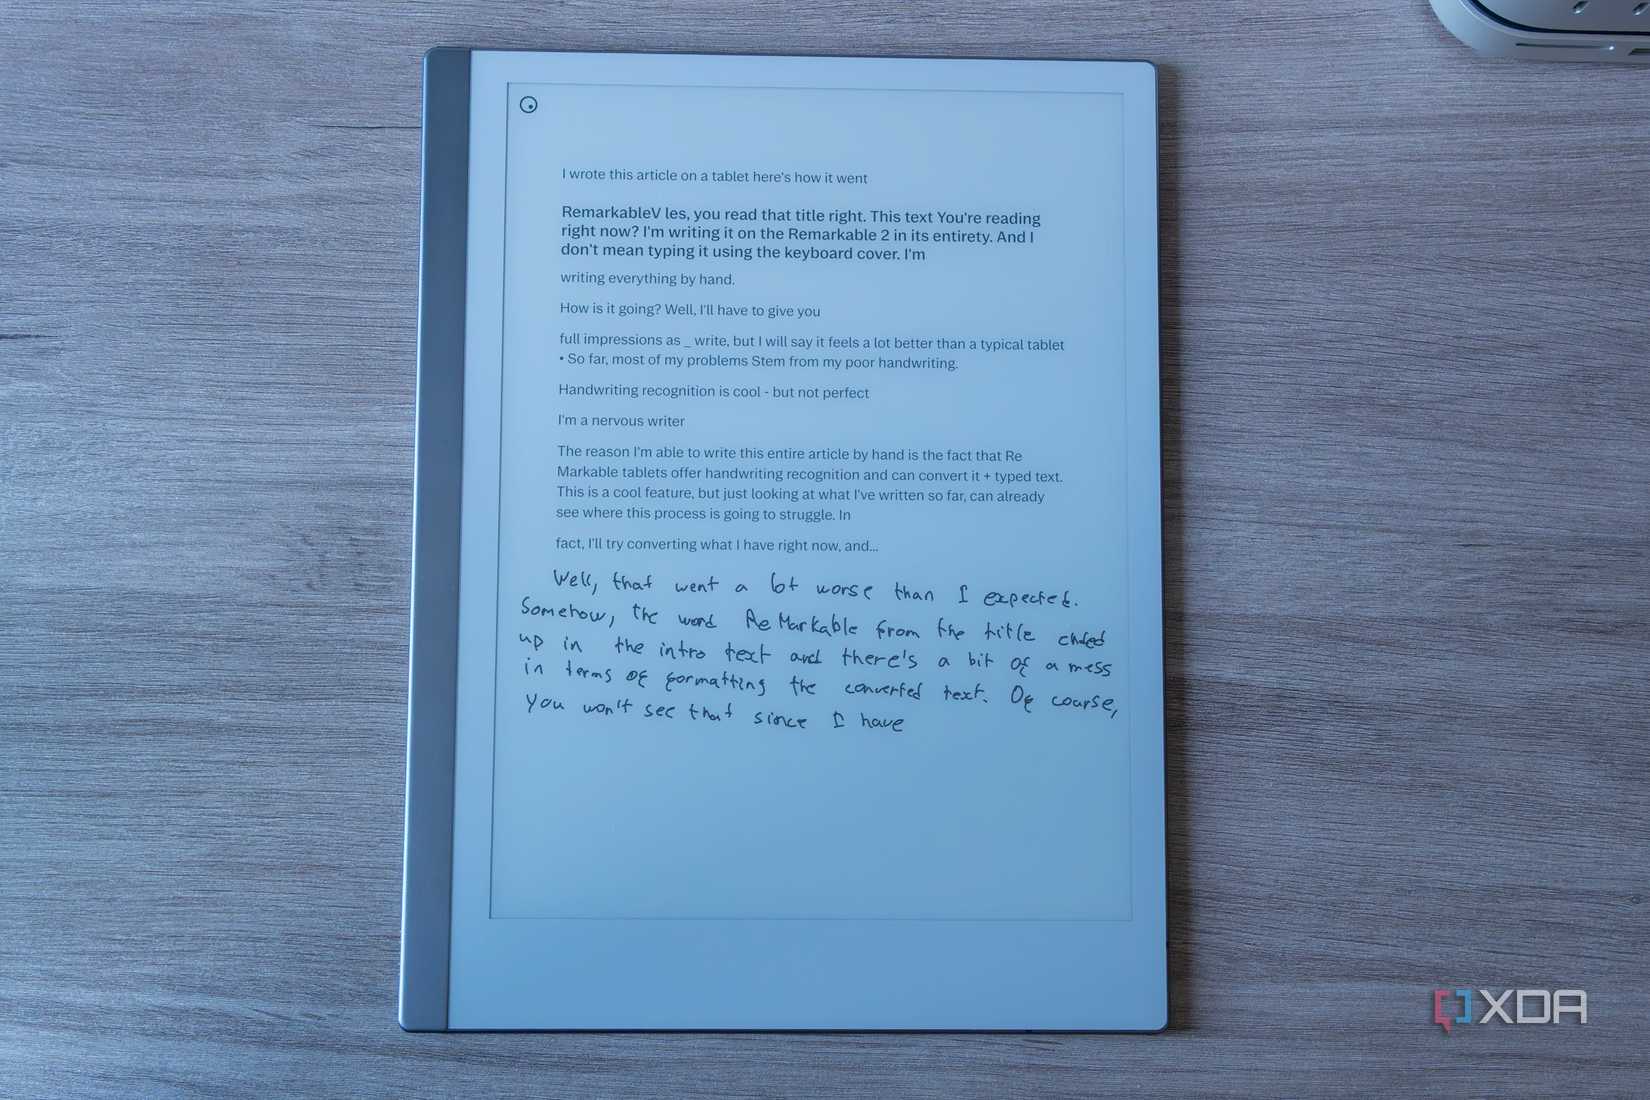 I wrote this article on a tablet here's how it went
RemarkableV les, you read that title right. This text You're reading
right now? I'm writing it on the Remarkable 2 in its entirety. And I
don't mean typing it using the keyboard cover. I'm
writing everything by hand.
How is it going? Well, I'll have to give you
full impressions as _ write, but I will say it feels a lot better than a typical tablet
• So far, most of my problems Stem from my poor handwriting.
Handwriting recognition is cool - but not perfect
I'm a nervous writer
The reason I'm able to write this entire article by hand is the fact that Re
Markable tablets offer handwriting recognition and can convert it + typed text.
This is a cool feature, but just looking at what I've written so far, can already
see where this process is going to struggle. In
fact, I'll try converting what I have right now, and...
Well, that went a lot worse than I expected.
Somehow, the word ReMarkable from the title ended
up in the intro text and there's a bit of a mess
in terms of formatting the converted text. Of course,
you won't see that since I have
XDA